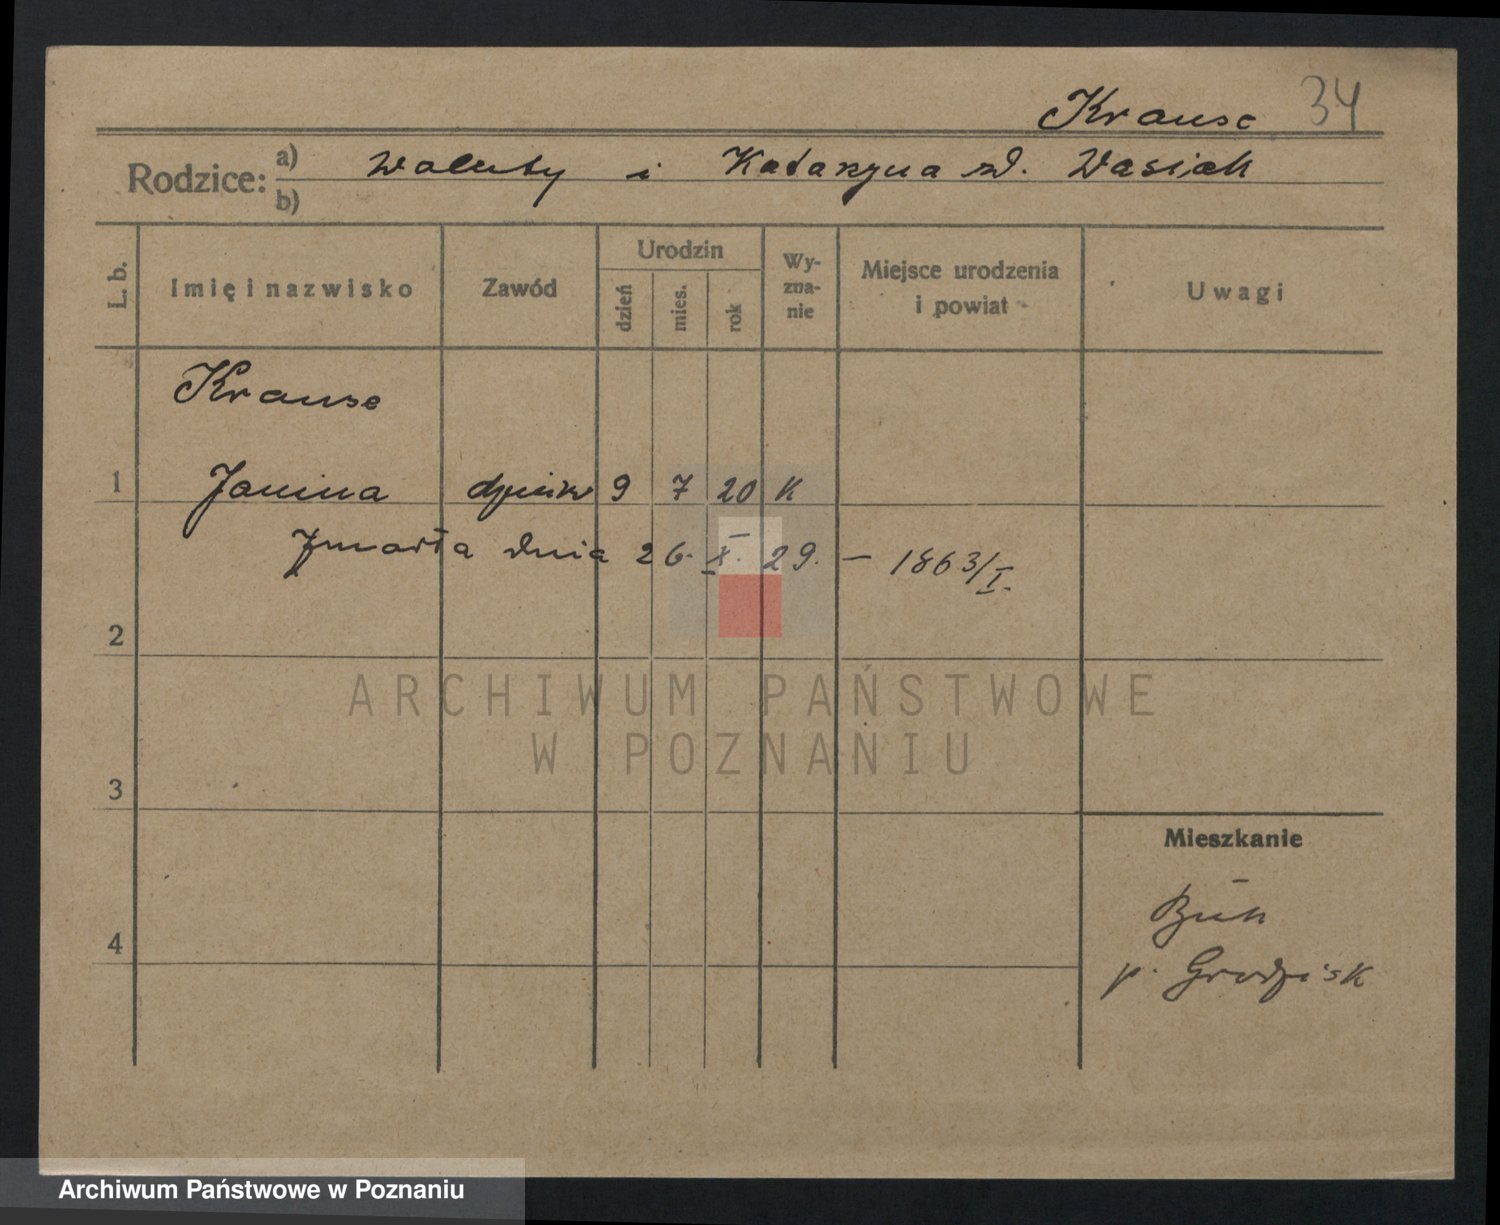 Krause 34
Rodzice: a) Walenty i Katarzyna zd. Wasiak
b)
L. b.
Imię i nazwisko
Zawód
Urodzin
dzień
mies.
rok
Wy-
zna-
nie
Miejsce urodzenia
i powiat
Uwagi
Krause
1 Janina 9 7 20 K
Zmarła dnia 26. X. 29. – 1863/I.
2
ARCHIWUM PAŃSTWOWE
W POZNANIU
3
Mieszkanie
Buk
4
p. Grodzisk
Archiwum Państwowe w Poznaniu